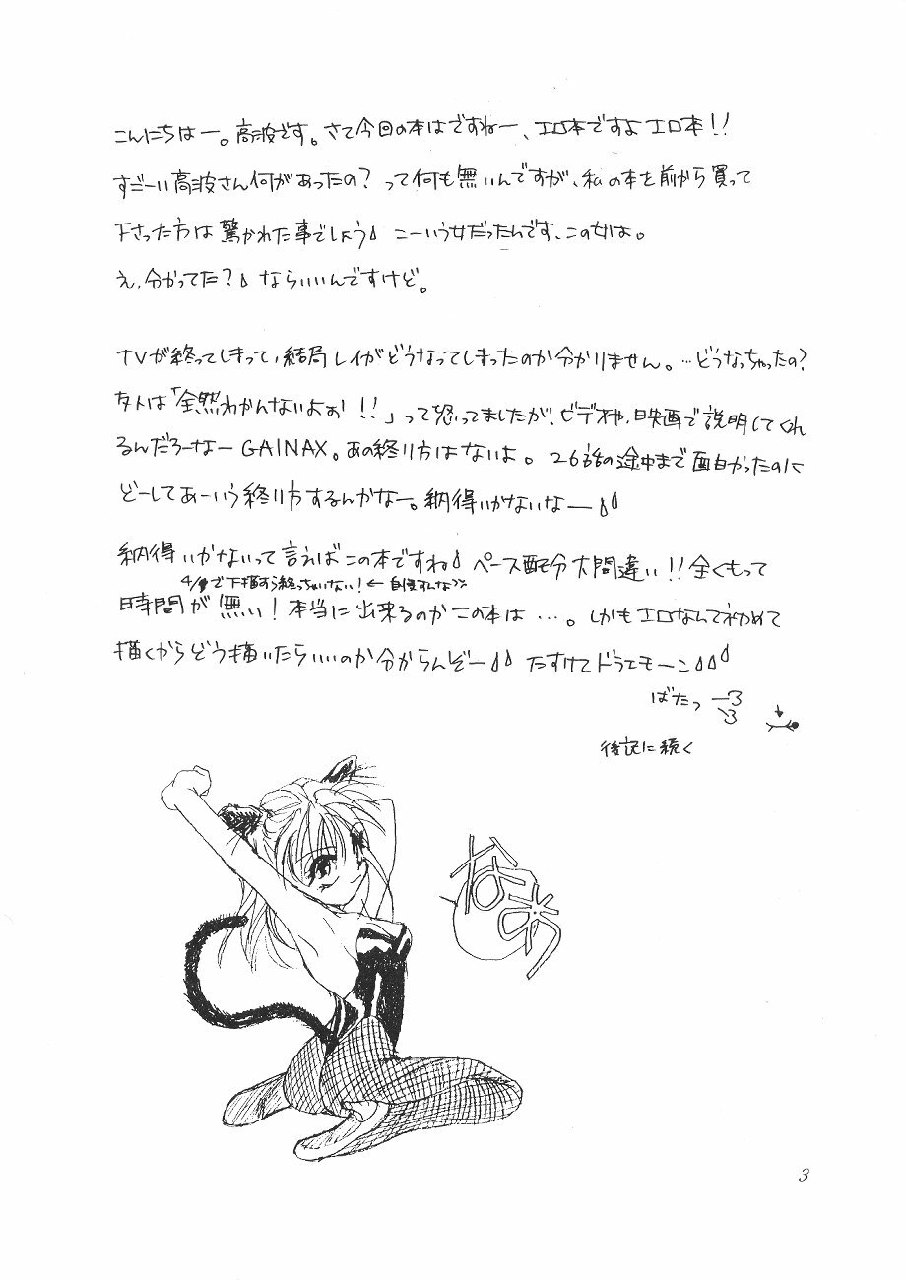 こんにちはー。高波です。さて今回の本はですねー、エロ本ですよエロ本!!
すごーい高波さん何があったの?って何も無いんですが、私の本を前から買って
下さった方は驚かれた事でしょう こーいう女だったんです、この女は。
え、分かってた? ならいいんですけど。
TVが終ってしまって、結局レイがどうなってしまったのか分かりません。…どうなっちゃったの?
友人は「全然わかんないよぉ!!」って怒ってましたが、ビデオや、映画で説明してくれ
るんだろーなーGAINAX。あの終り方はないよ。26話の途中まで面白かったのに
どーしてあーいう終り方するんかなー。納得いかないなー
納得いかないって言えばこの本ですね ペース配分大間違い!!全くもって
で下描すら終っちゃいない!←自慢すんな
時間が無い!本当に出来るのかこの本は…。しかもエロなんて初めて
描くからどう描いたらいいのか分からんぞー たすけてドラエモーン
ばたっ
後記に続く
なあ
3